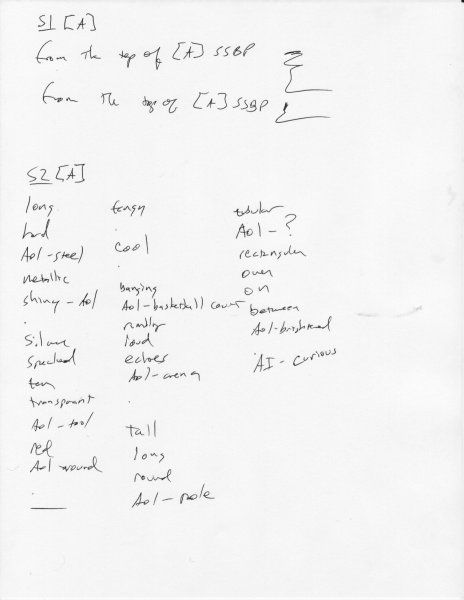 S1 [A]
from the top of [A] SSBP
from the top of [A] SSBP
S2 [A]
long
hard
Aol-steel
metallic
shiny-Aol
.
Silver
speckled
tan
transparent
Aol-tool
red
Aol-wound
.
tangy
.
cool
.
banging
Aol-basketball court
rumbly
loud
echoes
Aol-arena
.
tall
long
round
Aol-pole
tubular
Aol-?
rectangular
over
on
between
Aol-
AI-curious